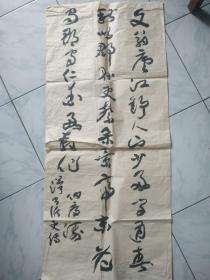 文翁廬江舒人也少好学通春
秋以郡縣吏察舉景帝末為
蜀郡守仁愛好教化